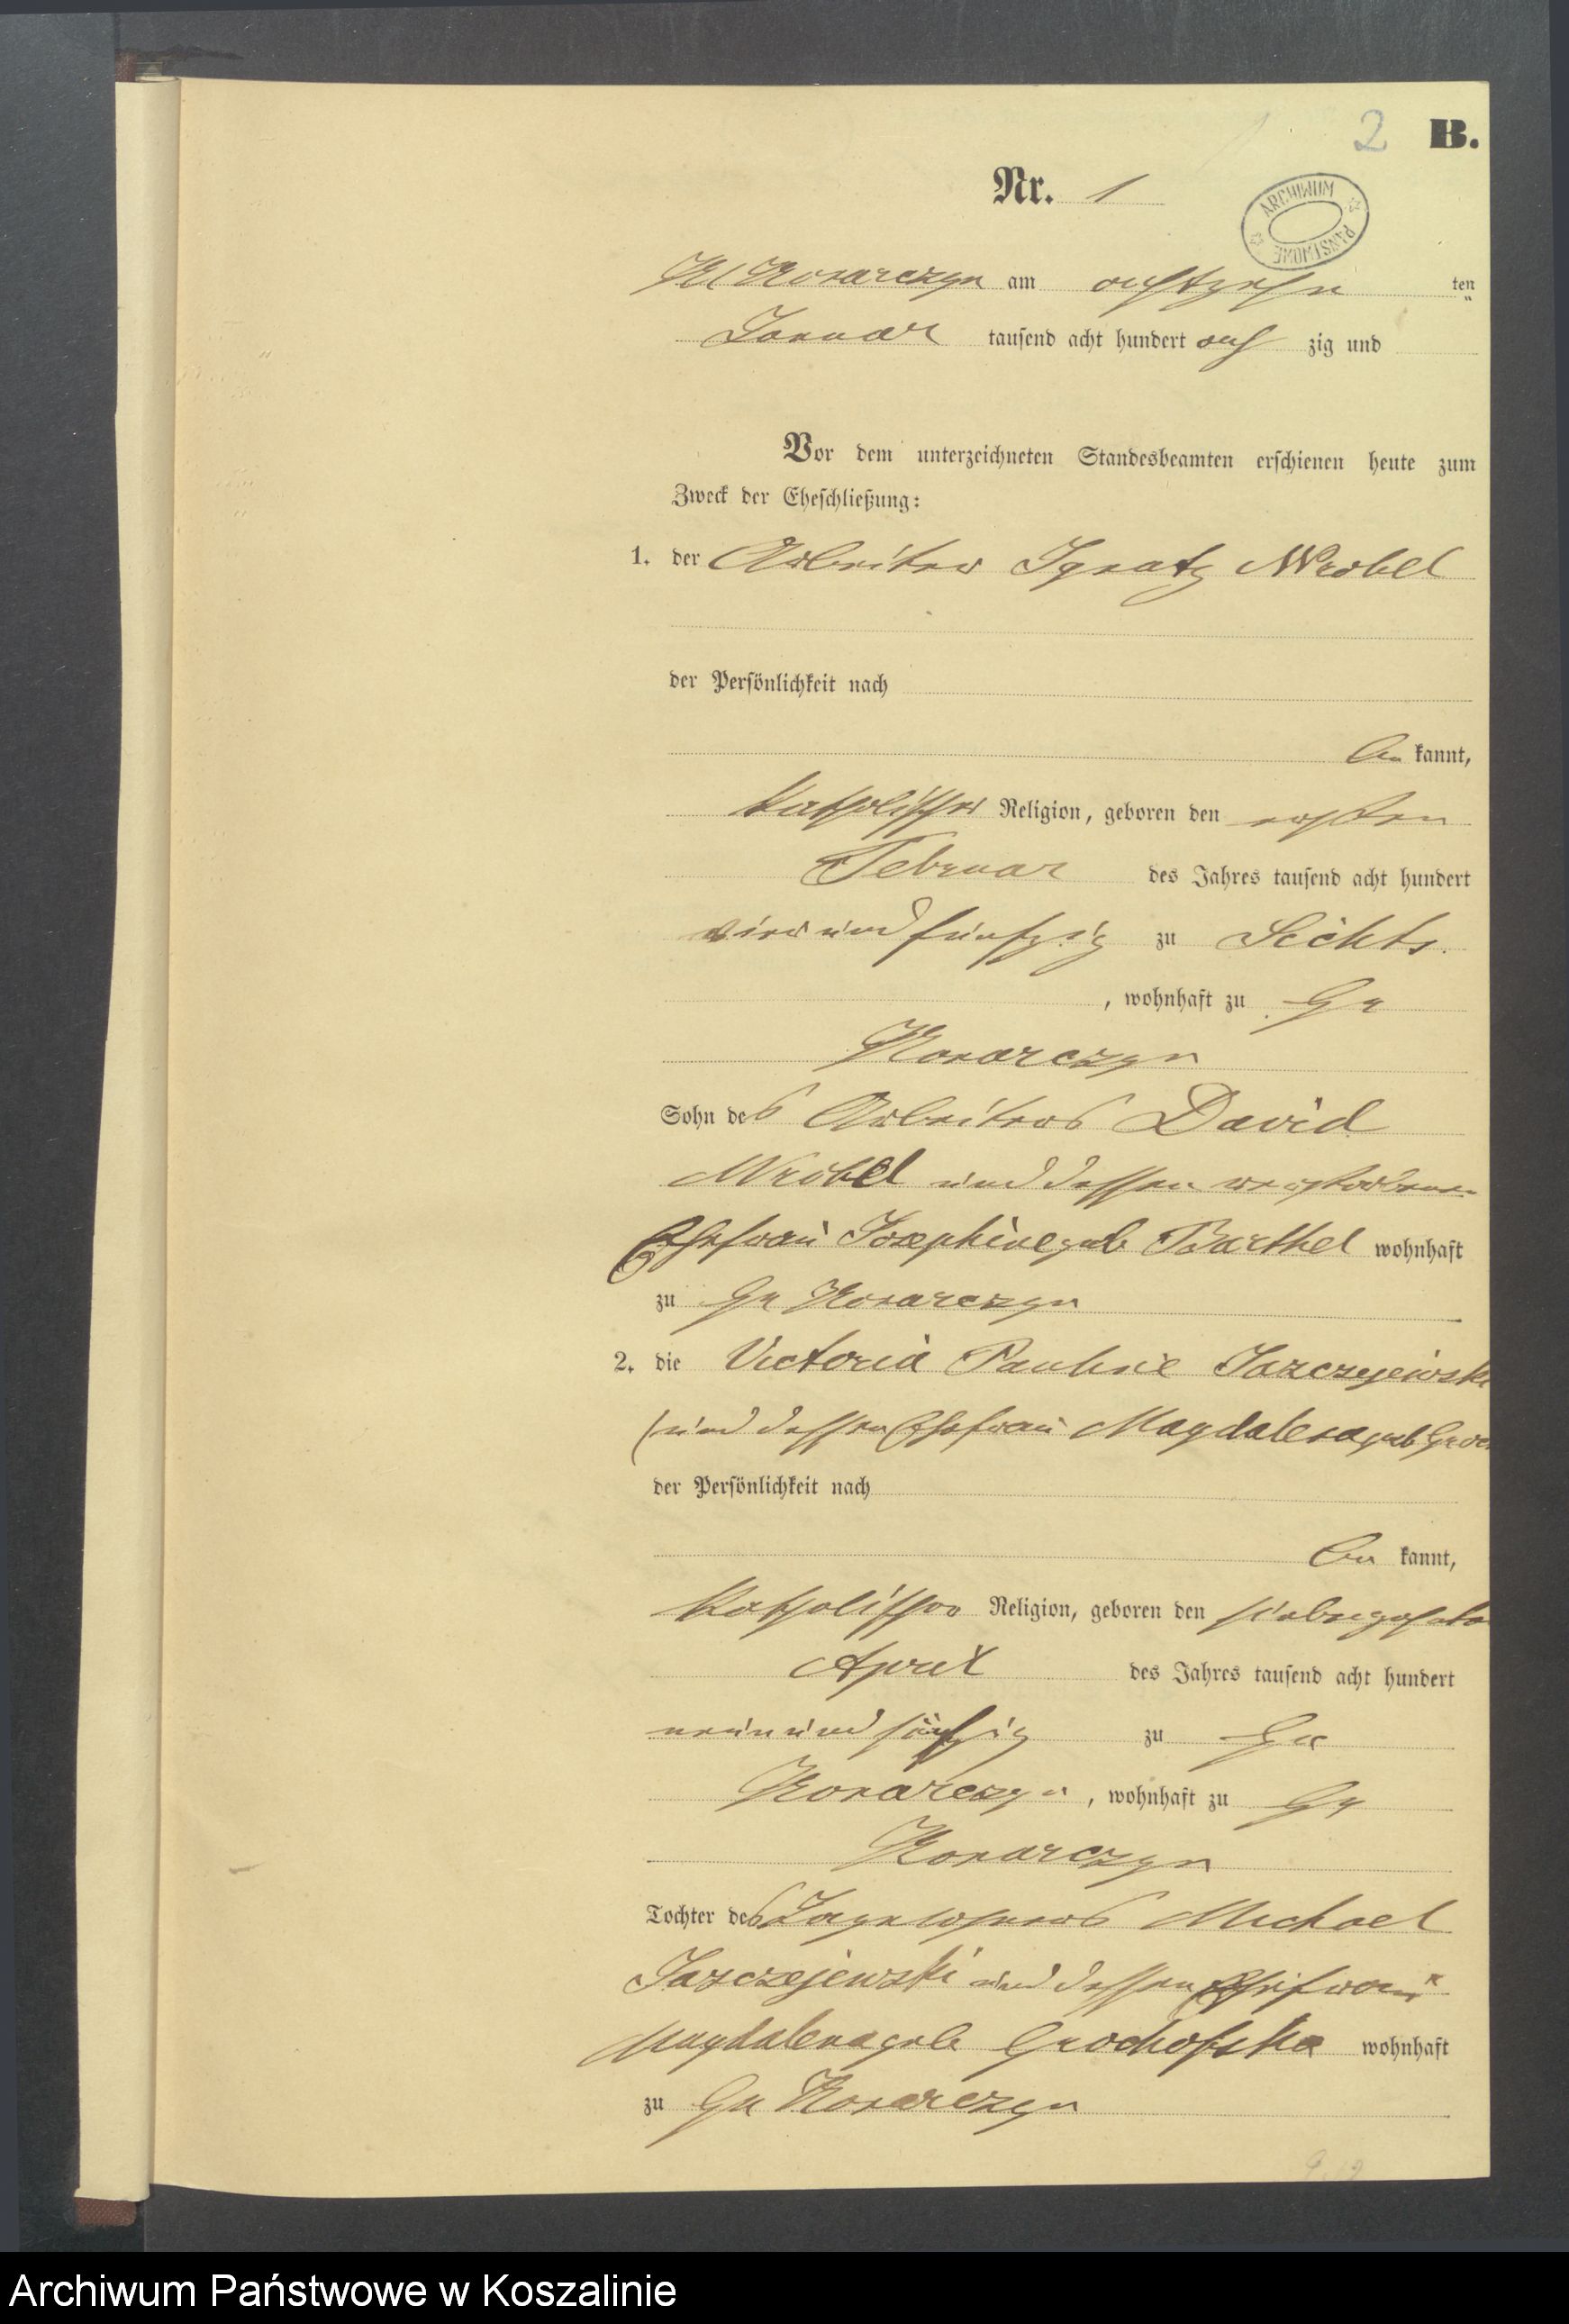 2 B.
Nr. 1
ARCHIWUM PAŃSTWOWE
Kl Konarczyn am achtzehn ten
Januar tausend acht hundert ach zig und
Vor dem unterzeichneten Standesbeamten erschienen heute zum
Zweck der Eheschließung:
1. der Arbeiter Ignatz Wrobel
der Persönlichkeit nach
be kannt,
katholischer Religion, geboren den ersten
Februar des Jahres tausend acht hundert
vier und fünfzig zu
, wohnhaft zu Gr
Konarczyn
Sohn des Arbeiters David
Wrobel und dessen verstorbenen
Ehefrau Josephine geb Barthel wohnhaft
zu Gr Konarczyn
2. die Victoria Pauline
(und dessen Ehefrau Magdalena geb
der Persönlichkeit nach
be kannt,
katholischer Religion, geboren den siebzehnten
April des Jahres tausend acht hundert
neun und fünfzig zu Gr
Konarczyn , wohnhaft zu Gr
Konarczyn
Tochter des Tagelöhners Michael
Jaszczejewski und dessen Ehefrau
Magdalena geb Grochofska wohnhaft
zu Gr Konarczyn
Archiwum Państwowe w Koszalinie